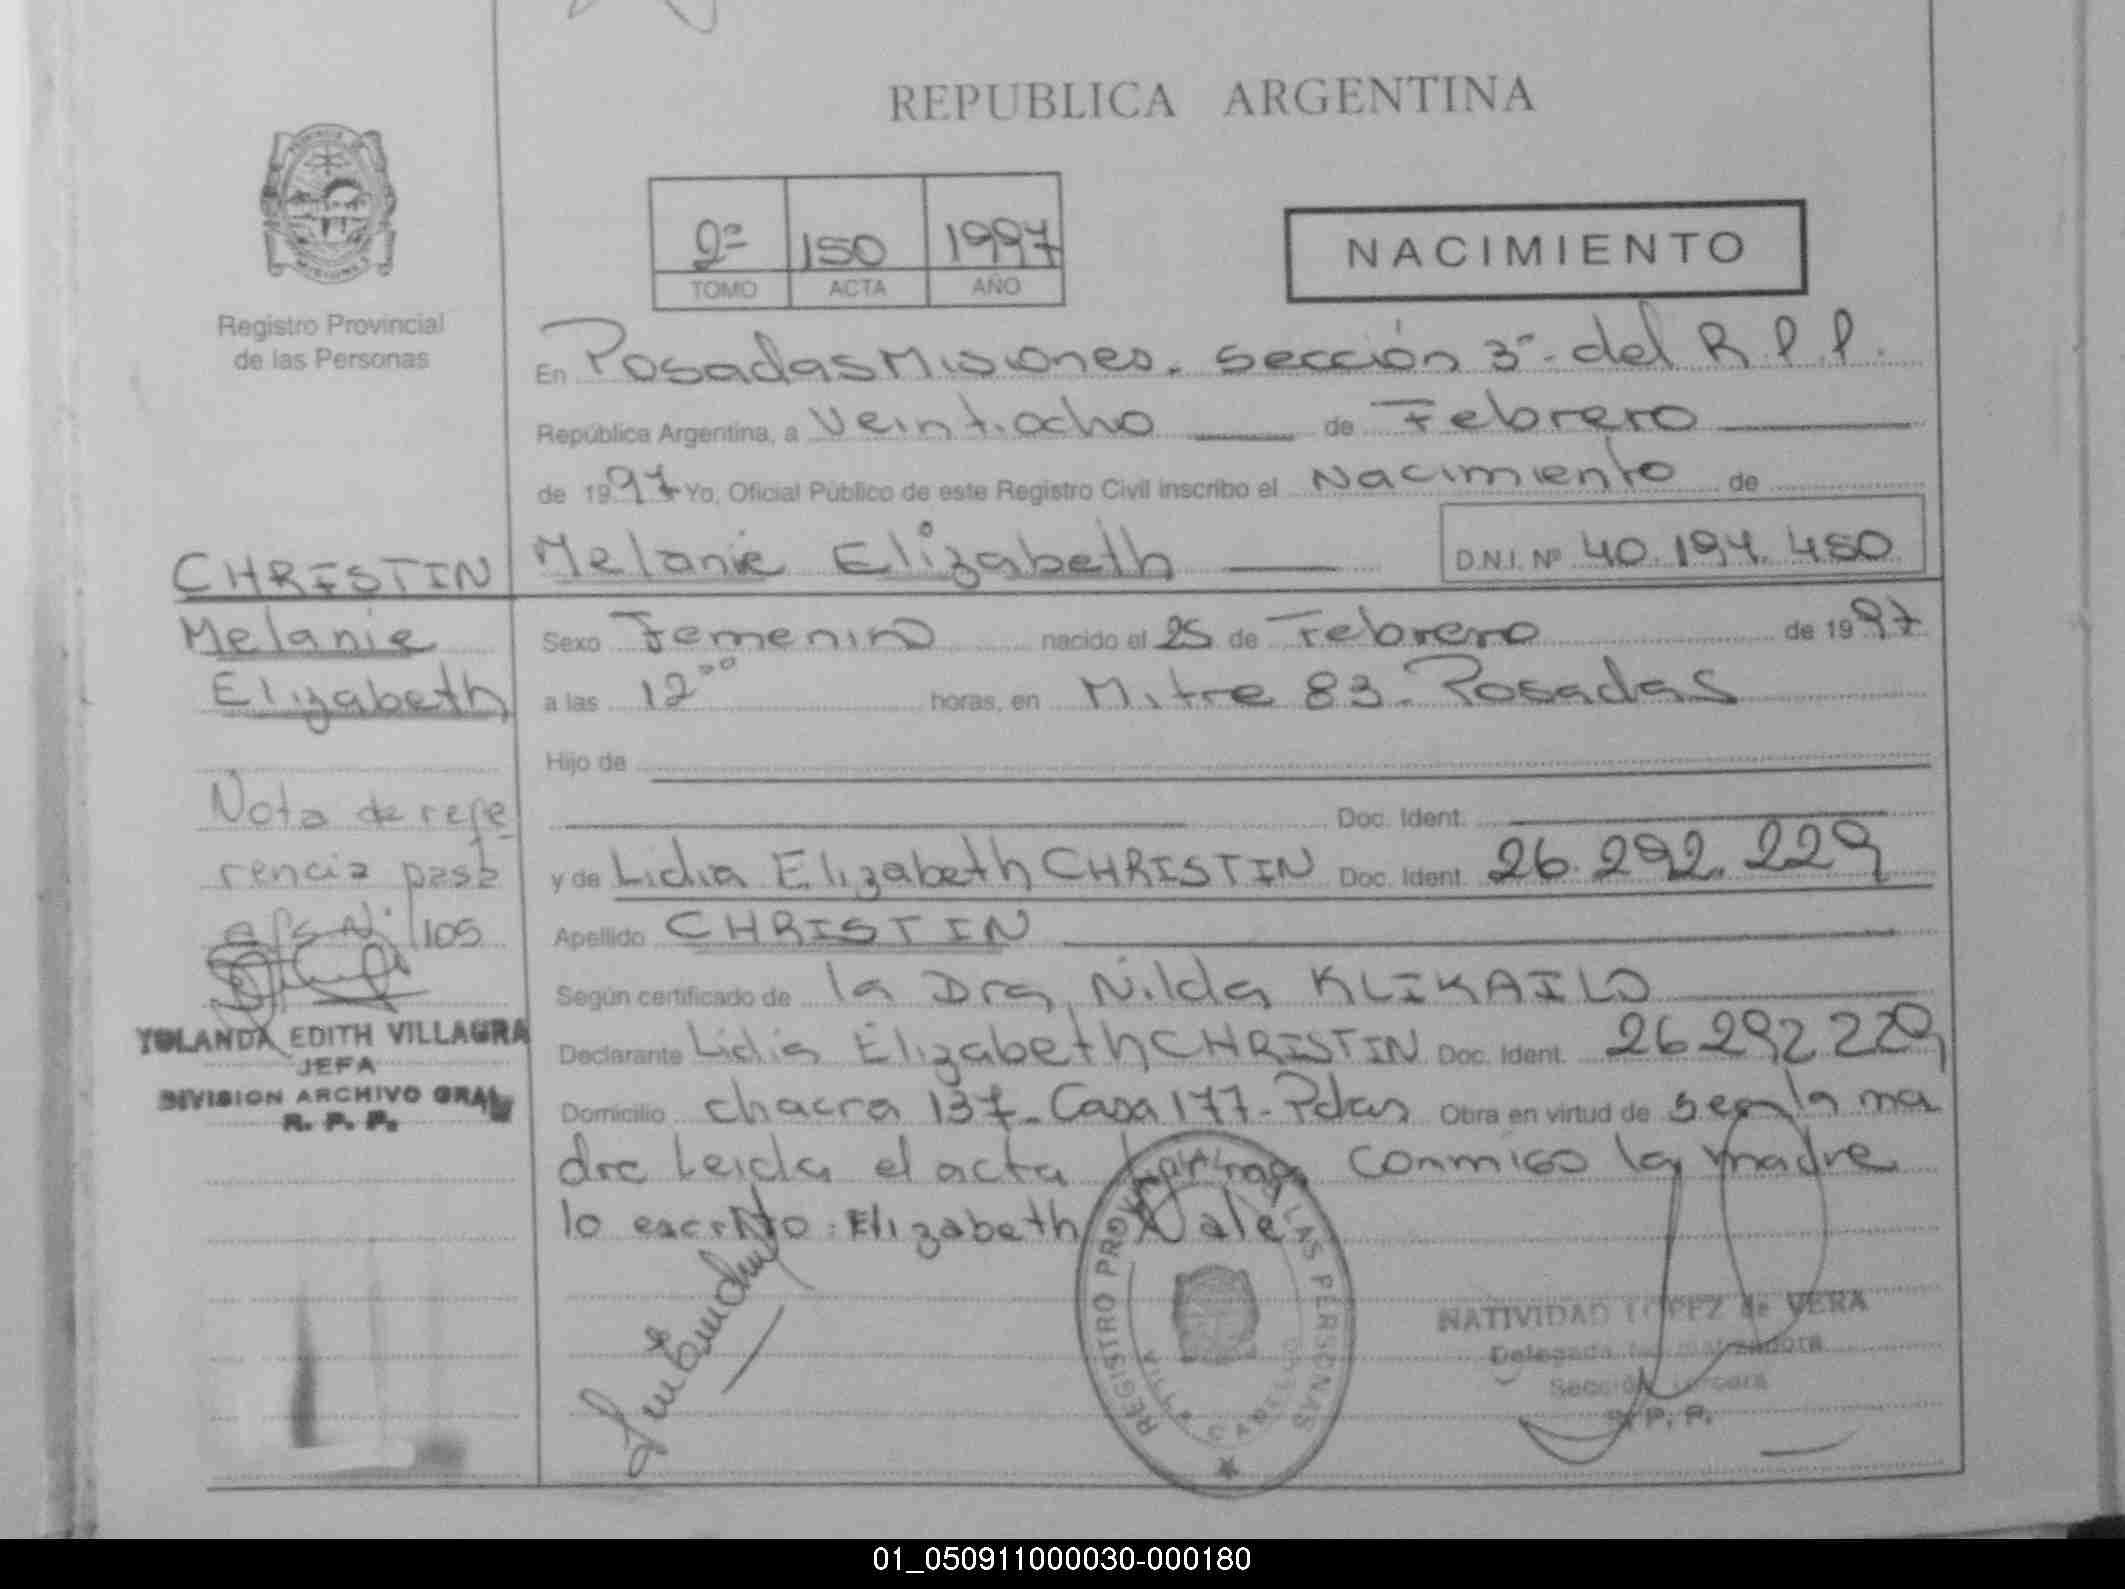 REPUBLICA ARGENTINA
2ª 150 1997
TOMO ACTA AÑO
NACIMIENTO
Registro Provincial
de las Personas
En Posadas Misiones. Sección 3ª del R.P.P.
República Argentina, a Veintiocho de Febrero
de 1997 Yo, Oficial Público de este Registro Civil inscribo el Nacimiento de
Melanie Elizabeth D.N.I. Nº 40.194.450
CHRISTIN
Melanie
Elizabeth
Sexo Femenino nacido el 25 de Febrero de 1997
a las 12⁰⁰ horas, en Mitre 83 - Posadas
Hijo de
Doc. Ident.
y de Lidia Elizabeth CHRISTIN Doc. Ident. 26.292.229
Apellido CHRISTIN
Según certificado de la Dra. Nilda KLIKAILO
Declarante Lidia Elizabeth CHRISTIN Doc. Ident. 26292229
Domicilio chacra 137 - Casa 177 - Pdas Obra en virtud de ser la ma
dre Leida el acta la firma conmigo la madre
lo escrito: Elizabeth Vale
Nota de refe
rencia pasa
a fs Nº 105
YOLANDA EDITH VILLAGRA
JEFA
DIVISION ARCHIVO GRAL
R. P. P.
REGISTRO PROVINCIAL DE LAS PERSONAS
NATIVIDAD LOPEZ de VERA
Delegada
Sección Tercera
R. P. P.
01_050911000030-000180